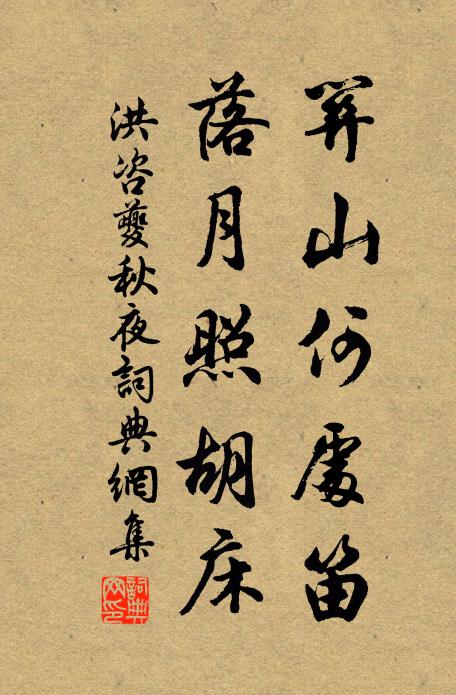 關山何處笛
落月照胡床
洪咨夔秋夜詞典網集
詞典網印